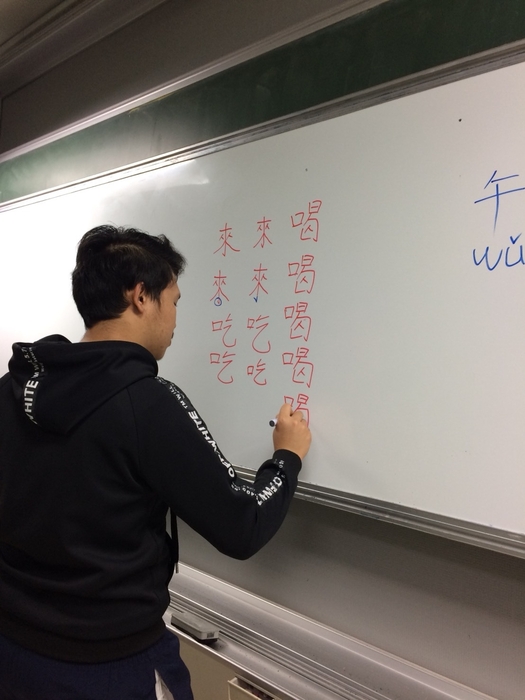 來 來 喝
來 來 喝
吃 吃 喝
吃 吃 喝
喝
午
wǔ
WHITE
OFF-WHITE